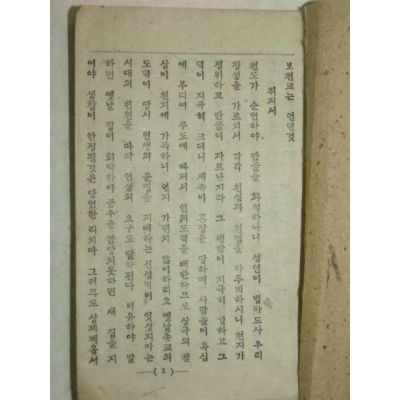 보천교는 엇던것
취지서
천도가 순연하야 만물을 화성하나니 성연이 법바드사 우리
창생을 가르쳐서 각각 천성과 천명을 마루게하시니 천지가
정위하고 만물이 자르난지라 그 행함이 지극히 길하고 그
덕이 지극히 크더니 세속이 혼장을 당하매 사람들이 욕심
에 무리여 무도에 빠져서 인의도덕을 배반하므로 상극의 참
상이 천지에 가득하니 엇지 가련치 않이하리요 예날종교의
도덕이 앙시 인생의 운명을 지배하는 신성력이 잇섯지마는
시대의 변천을 따라 인생의 요구도 달하진다 비유하야 말
하면 옛날 집이 퇴락하야 풍우를 감당치못하면 새 집을 지
여야 생활이 안정될것은 당연한 리치다 그러므로 상제께옵서
(1)